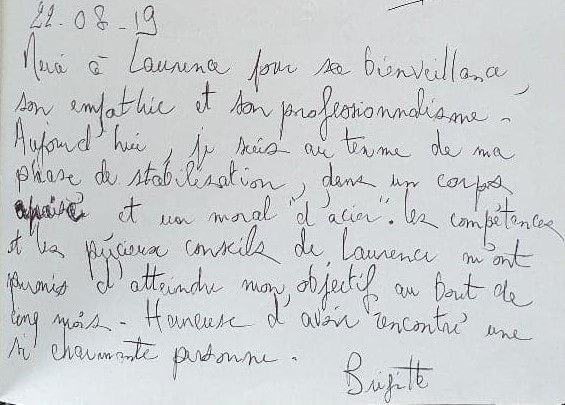 22.08.19
Merci à Laurence pour sa bienveillance,
son empathie et son professionnalisme.
Aujourd'hui, je suis au terme de ma
phase de stabilisation, dans un corps
apaisé et un moral "d'acier". les compétences
et les précieux conseils de Laurence m'ont
permis d'atteindre mon objectif au bout de
long mois. Heureuse d'avoir rencontré une
si charmante personne.
Brigitte